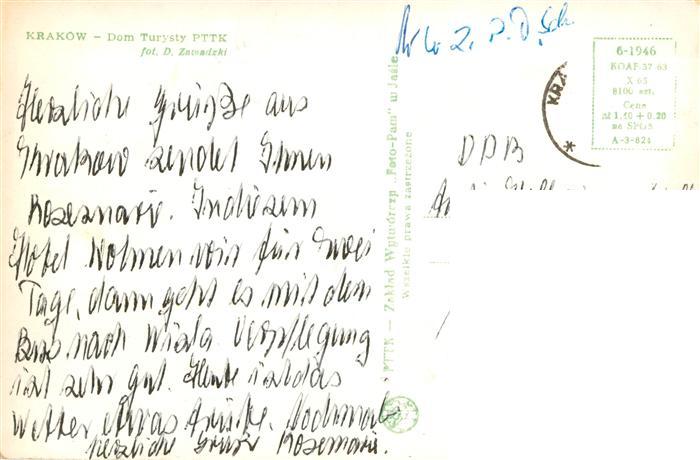 KRAKÓW – Dom Turysty PTTK
fot. D. Zawadzki
Herzliche Grüße aus
Krakow sendet Ihnen
Rosemarie. In diesem
Hotel Wohnen wir für zwei
Tage, dann geht es mit dem
Bus nach Wisla Verpflegung
ist sehr gut. Heute ist das
Wetter etwas trübe. Nochmals
herzliche Grüße Rosemarie.
PTTK – Zakład Wytwórczy „Foto-Pam" w Jaśle
Wszelkie prawa zastrzeżone
6-1946
KOAF-37-63
X 65
8100 szt.
Cena
zł 1.40 + 0.20
na SFOS
A-3-824
KRA
DDR